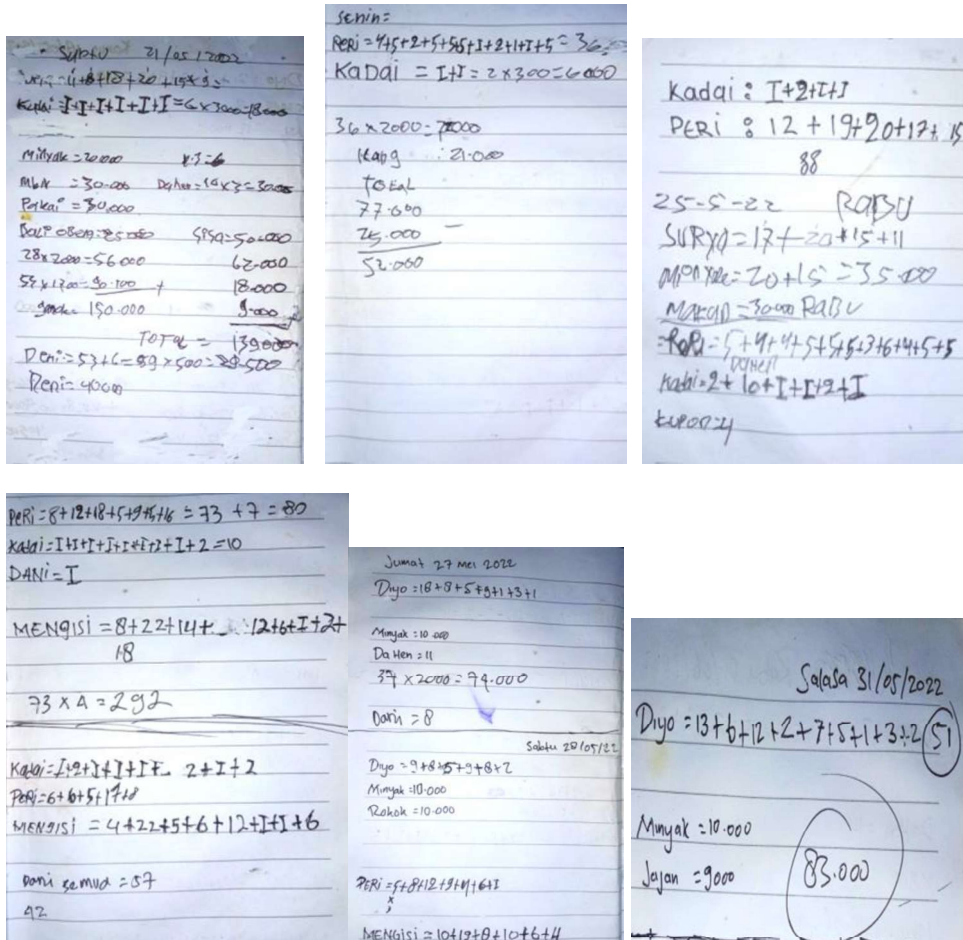 Sabtu 21/05/2002
Peri = 4+8+18+20+15+9=
Kadai = I+I+I+I+I+I=6x3000=18000
Minyak = 20.000
= 30.000 x3=30.000
Pakai = 30.000
28x2000=56.000 62.000
18.000
= 150.000 9.000
TOTAL = 139000
Deni = 53+6=59x500=29.500
Deni = 40000
Senin=
PERi = 4+5+2+5+5+5+I+2+I+I+5=36
KaDai = I+I=2x300=6000
36x2000=72000
21.000
TOTAL
77.000
25.000 -
52.000
Kadai : I+2+I+I
PERi : 12+19+20+17+15
88
25-5-22 RaBU
SURYa=17+20+15+11
=20+15=35.000
MaKaN=30000 RaBU
PeRi=5+4+4+5+5+5+3+6+4+5+5
DaHen
Kadai=2+10+I+I+2+I
KuPon=4
PeRi=8+12+18+5+9+5+16=73+7=80
Kadai=I+I+I+I+I+I+3+I+2=10
DANi=I
MENgisi=8+22+14+... 12+6+I+2+
18
73 x 4 = 292
Kadai=I+2+I+I+I+ 2+I+2
PeRi=6+6+5+17+8
MENgisi = 4+22+5+6+12+I+I+6
Dani semua = 57
42
Jumat 27 Mei 2022
Diyo = 18+8+5+9+1+3+1
Minyak = 10.000
DaHen = 11
37 x2000=74.000
Dani = 8
Sabtu 28/05/22
Diyo = 9+8+5+9+8+2
Minyak = 10.000
Rokok = 10.000
PERi = 5+8+12+9+4+6+I
MENgisi = 10+19+8+10+6+4
Salasa 31/05/2022
Diyo = 13+6+12+2+7+5+1+3+2 51
Minyak = 10.000
Jajan = 9000 83.000